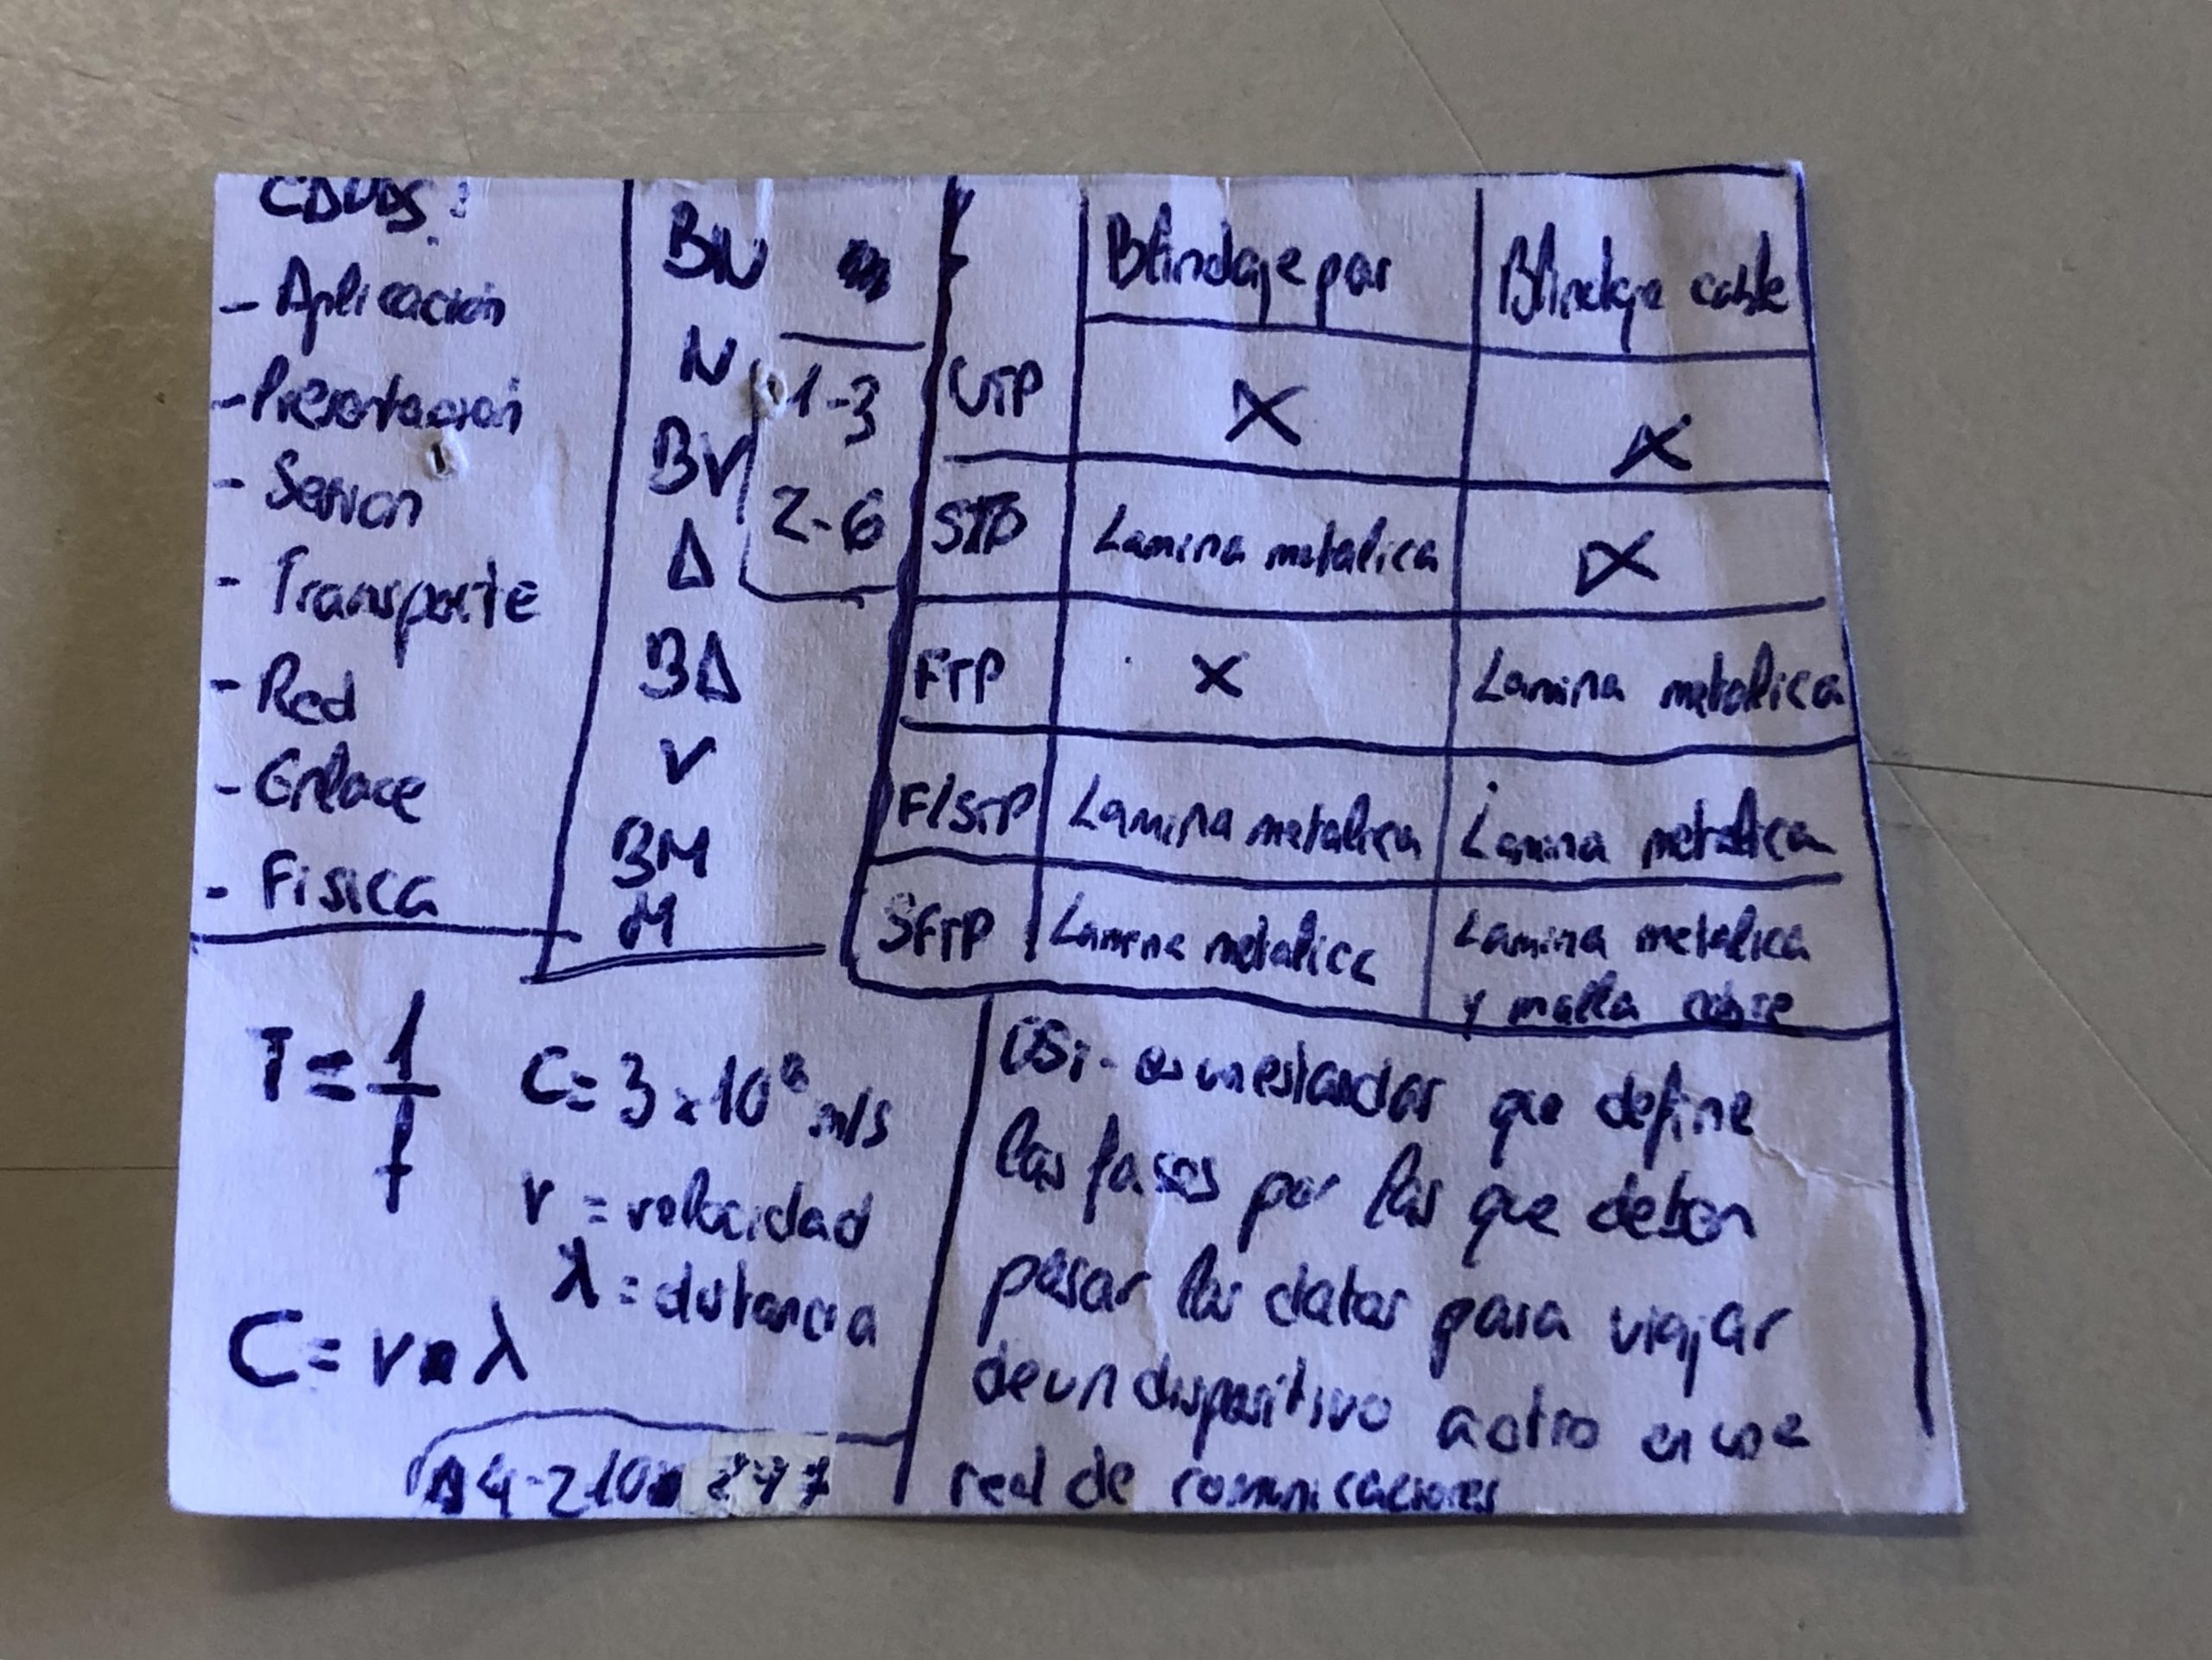 - Aplicación
- Presentacion
- Sesion
- Transporte
- Red
- Enlace
- Fisica
BN
N
BV
A
BA
V
BM
M
1-3
2-6
Blindaje par Blindaje cable
UTP X X
STP Lamina metalica X
FTP X Lamina metalica
F/STP Lamina metalica Lamina metalica
SFTP Lamina metalica Lamina metalica
y malla cobre
T = 1/f
C = 3 x 10⁸ m/s
v = velocidad
λ = distancia
C = v x λ
A4-210x 297
OSi - es un estandar que define
las fases por las que deben
pasar los datos para viajar
de un dispositivo a otro en una
red de comunicaciones